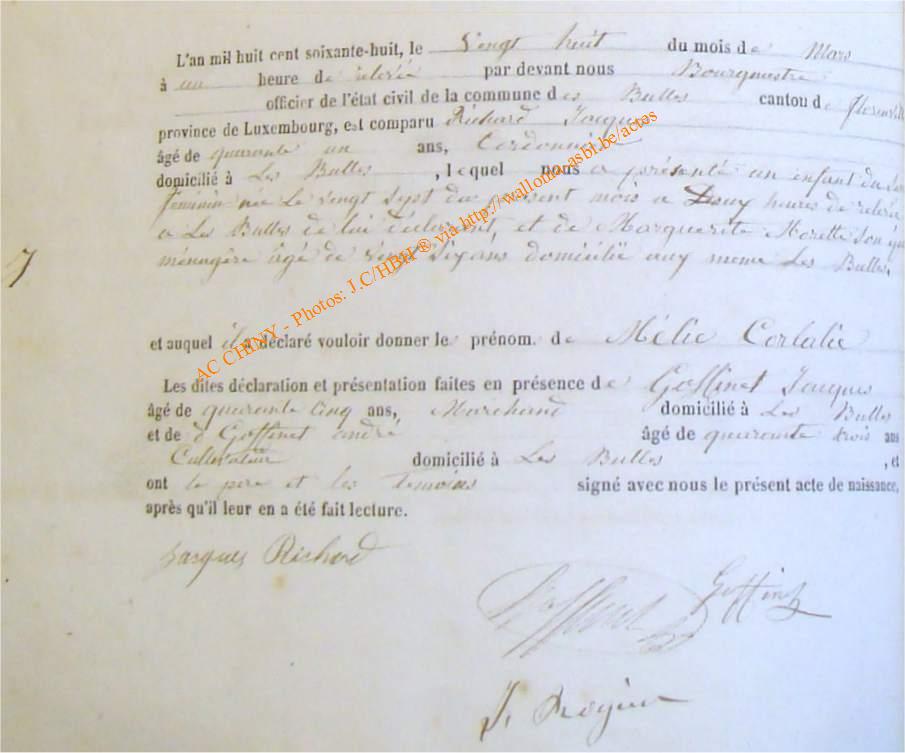 L'an mil huit cent soixante-huit, le Vingt huit du mois de Mars
à un heure de relevée par devant nous Bourgmestre
officier de l'état civil de la commune des Bulles canton de
province de Luxembourg, est comparu Richard Jacques
âgé de quarante un ans, Cordonnier
domicilié à Les Bulles, lequel nous a présenté un enfant du
féminin née Le vingt Sept du présent mois a Deux heures de relevée
a Les Bulles de lui déclarant, et de Marguerite Morette Son
ménagère âgé de Vingt Six ans domicilié aux meme Les Bulles.
7
et auquel il a déclaré vouloir donner le prénom. de Mélie
Les dites déclaration et présentation faites en présence de Goffinet Jacques
âgé de quarante cinq ans, Marchand domicilié à Les Bulles
et de d Goffinet andré âgé de quarante trois ans
Cultivateur domicilié à Les Bulles, et
ont le pere et les temoins signé avec nous le présent acte de naissance,
après qu'il leur en a été fait lecture.
Jacques Richard
Goffinet
Goffinet
AC CHINY - Photos: J.C/HBH® via http://wallonia.asbl.be/actes